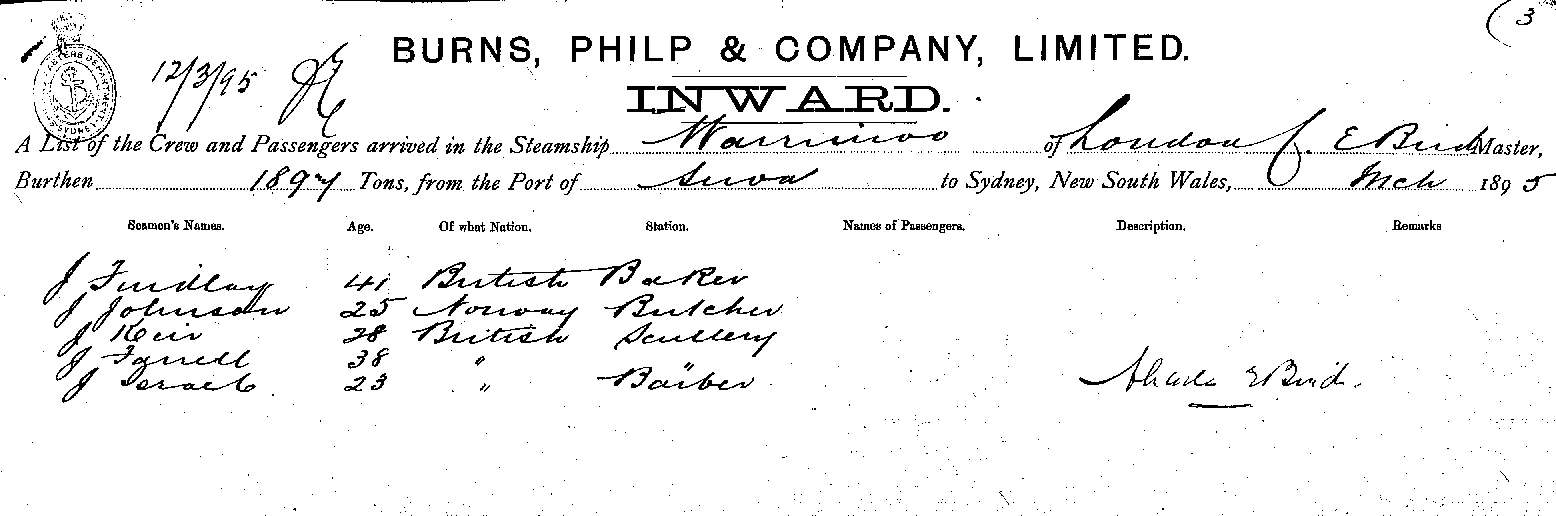 3
BURNS, PHILP & COMPANY, LIMITED.
12/3/95
INWARD.
A List of the Crew and Passengers arrived in the Steamship Warrimoo of London C. E Bird Master,
Burthen 1897 Tons, from the Port of Suva to Sydney, New South Wales, Mch 1895
Seamen's Names. Age. Of what Nation. Station. Names of Passengers. Description. Remarks
J Findlay 41 British Baker
J Johnson 25 Norway Butcher
J Keir 28 British Scullery
J Farrell 38 " "
J Israel 23 " Barber
E Bird